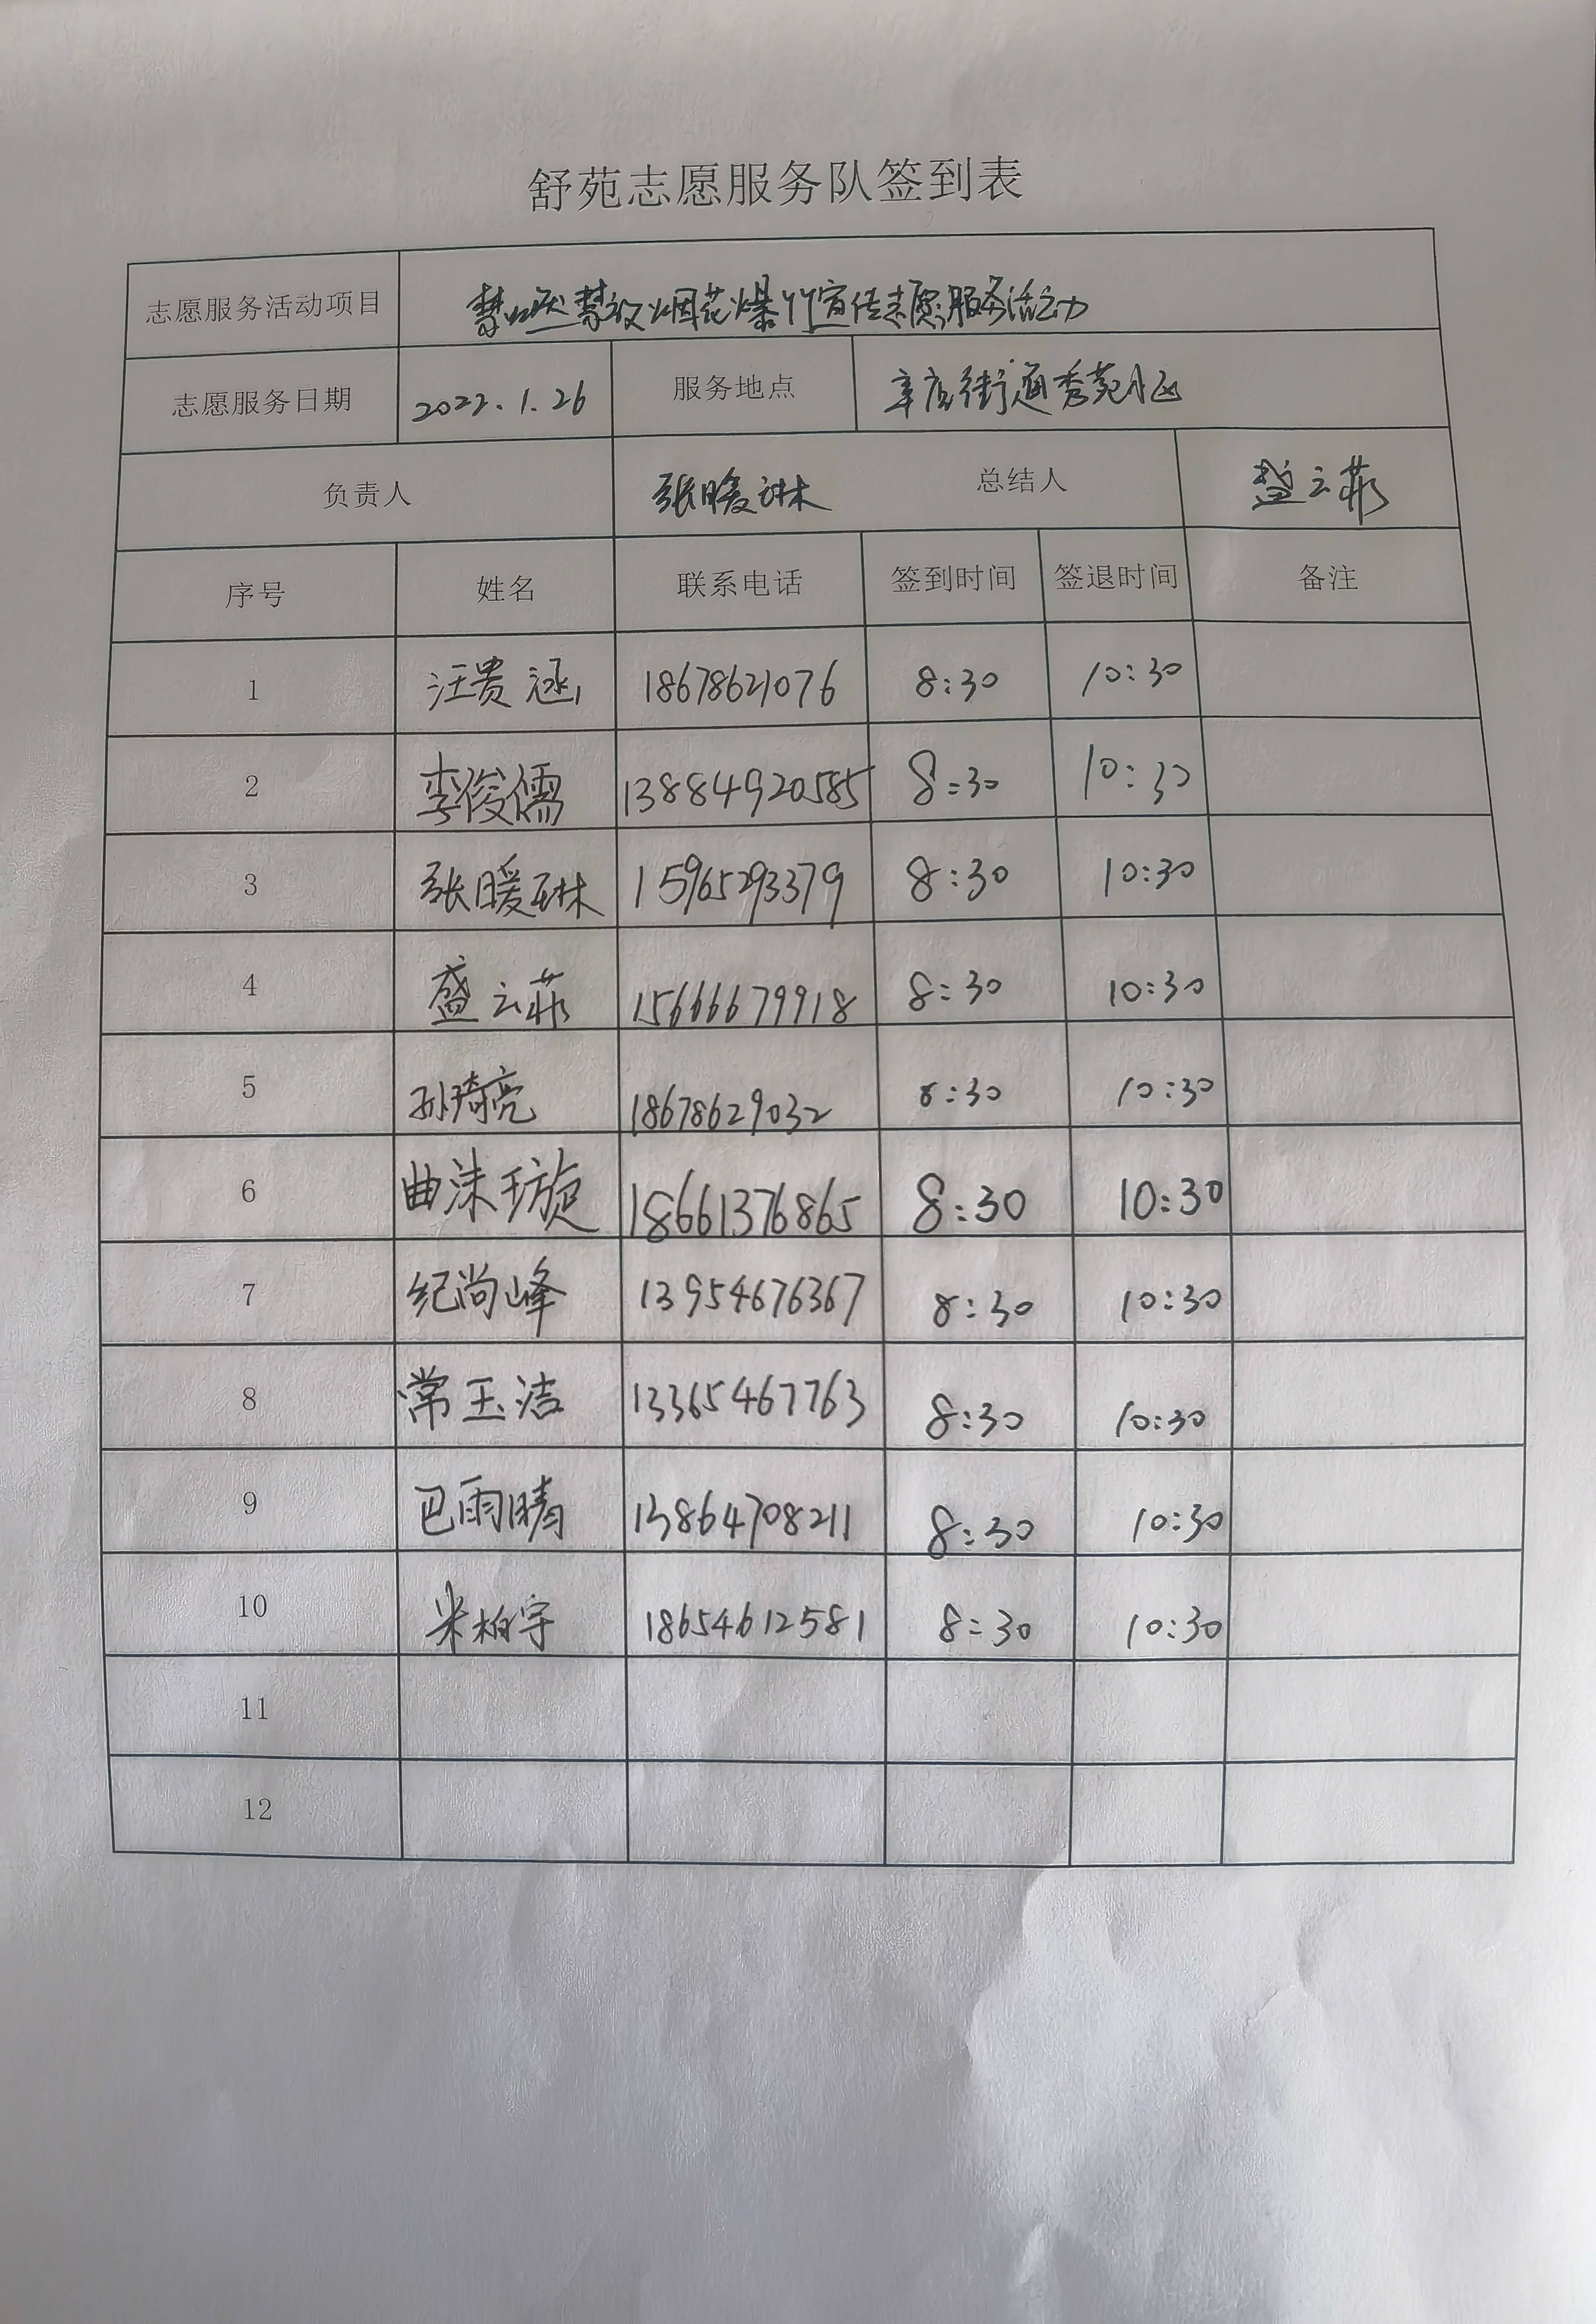 舒苑志愿服务队签到表
志愿服务活动项目 禁燃禁放烟花爆竹宣传志愿服务活动
志愿服务日期 2022.1.26 服务地点 辛店街道秀苑小区
负责人 张暖琳 总结人 盛云菲
序号 姓名 联系电话 签到时间 签退时间 备注
1 汪贵涵 18678621076 8:30 10:30
2 李俊儒 13884920585 8:30 10:30
3 张暖琳 15965293379 8:30 10:30
4 盛云菲 15666679918 8:30 10:30
5 孙琦亮 18678629032 8:30 10:30
6 曲沫璇 18661376865 8:30 10:30
7 纪尚峰 13954676367 8:30 10:30
8 常玉洁 13365467763 8:30 10:30
9 巴雨晴 13864708211 8:30 10:30
10 米柏宇 18654612581 8:30 10:30
11
12